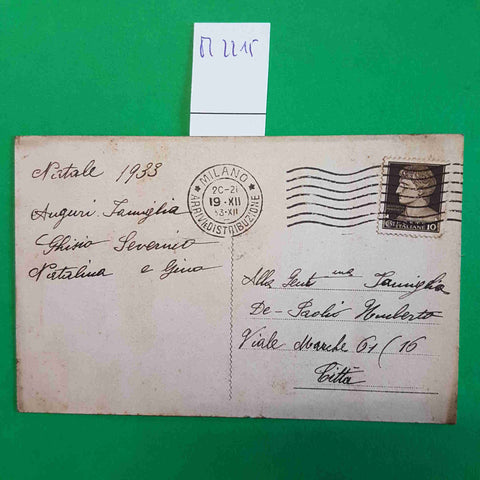 M 2215
Natale 1933
Auguri Famiglia
Ghisio Severino
Natalina e Gino
MILANO
20-21
19·XII
33·XII
ARRIVI E DISTRIBUZIONE
POSTE ITALIANE 10
Alla Gent ma Famiglia
De-Paolis Umberto
Viale Marche 61/16
Città